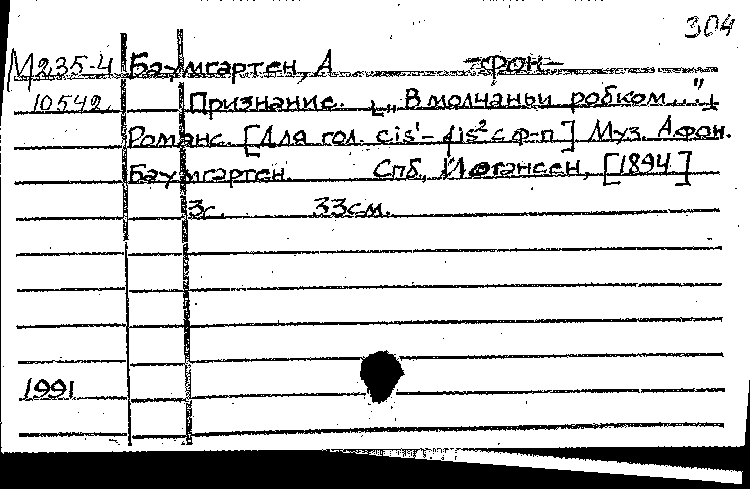 304
М235-4 Баумгартен, А -фон-
10542 Признание. [„В молчаньи робком..."]
Романс. [Для гол. cis¹- fis² с ф-п] Муз. А.фон.
Баумгартен. Спб., Иогансен, [1894]
3с. 33см.
1991